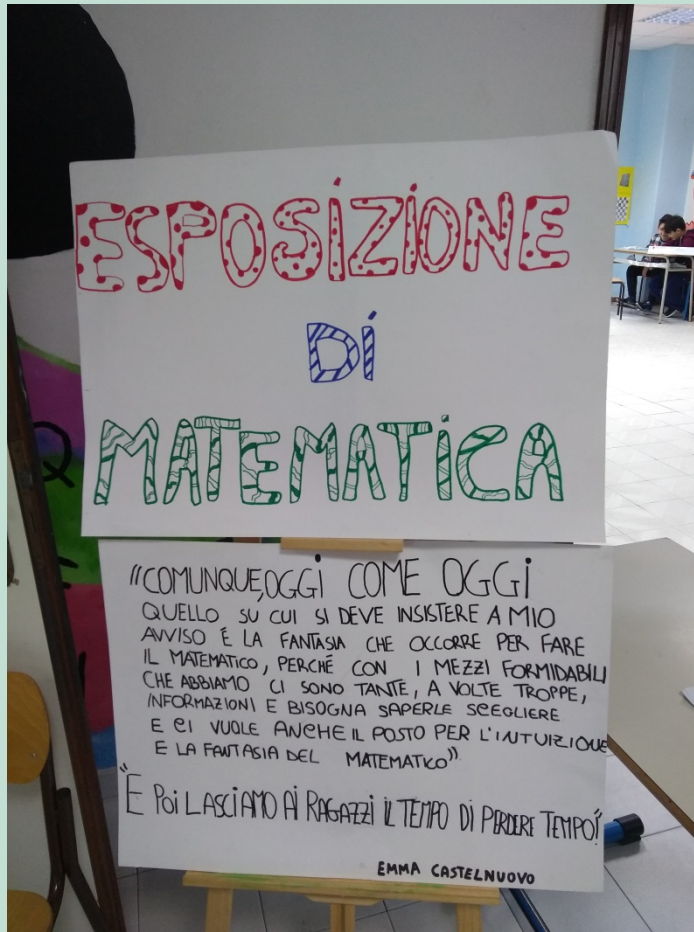 ESPOSIZIONE
DI
MATEMATICA
"COMUNQUE, OGGI COME OGGI
QUELLO SU CUI SI DEVE INSISTERE A MIO
AVVISO É LA FANTASIA CHE OCCORRE PER FARE
IL MATEMATICO, PERCHÉ CON I MEZZI FORMIDABILI
CHE ABBIAMO CI SONO TANTE, A VOLTE TROPPE,
INFORMAZIONI E BISOGNA SAPERLE SCEGLIERE
E CI VUOLE ANCHE IL POSTO PER L'INTUIZIONE
E LA FANTASIA DEL MATEMATICO"
"E POI LASCIAMO AI RAGAZZI IL TEMPO DI PERDERE TEMPO!"
EMMA CASTELNUOVO